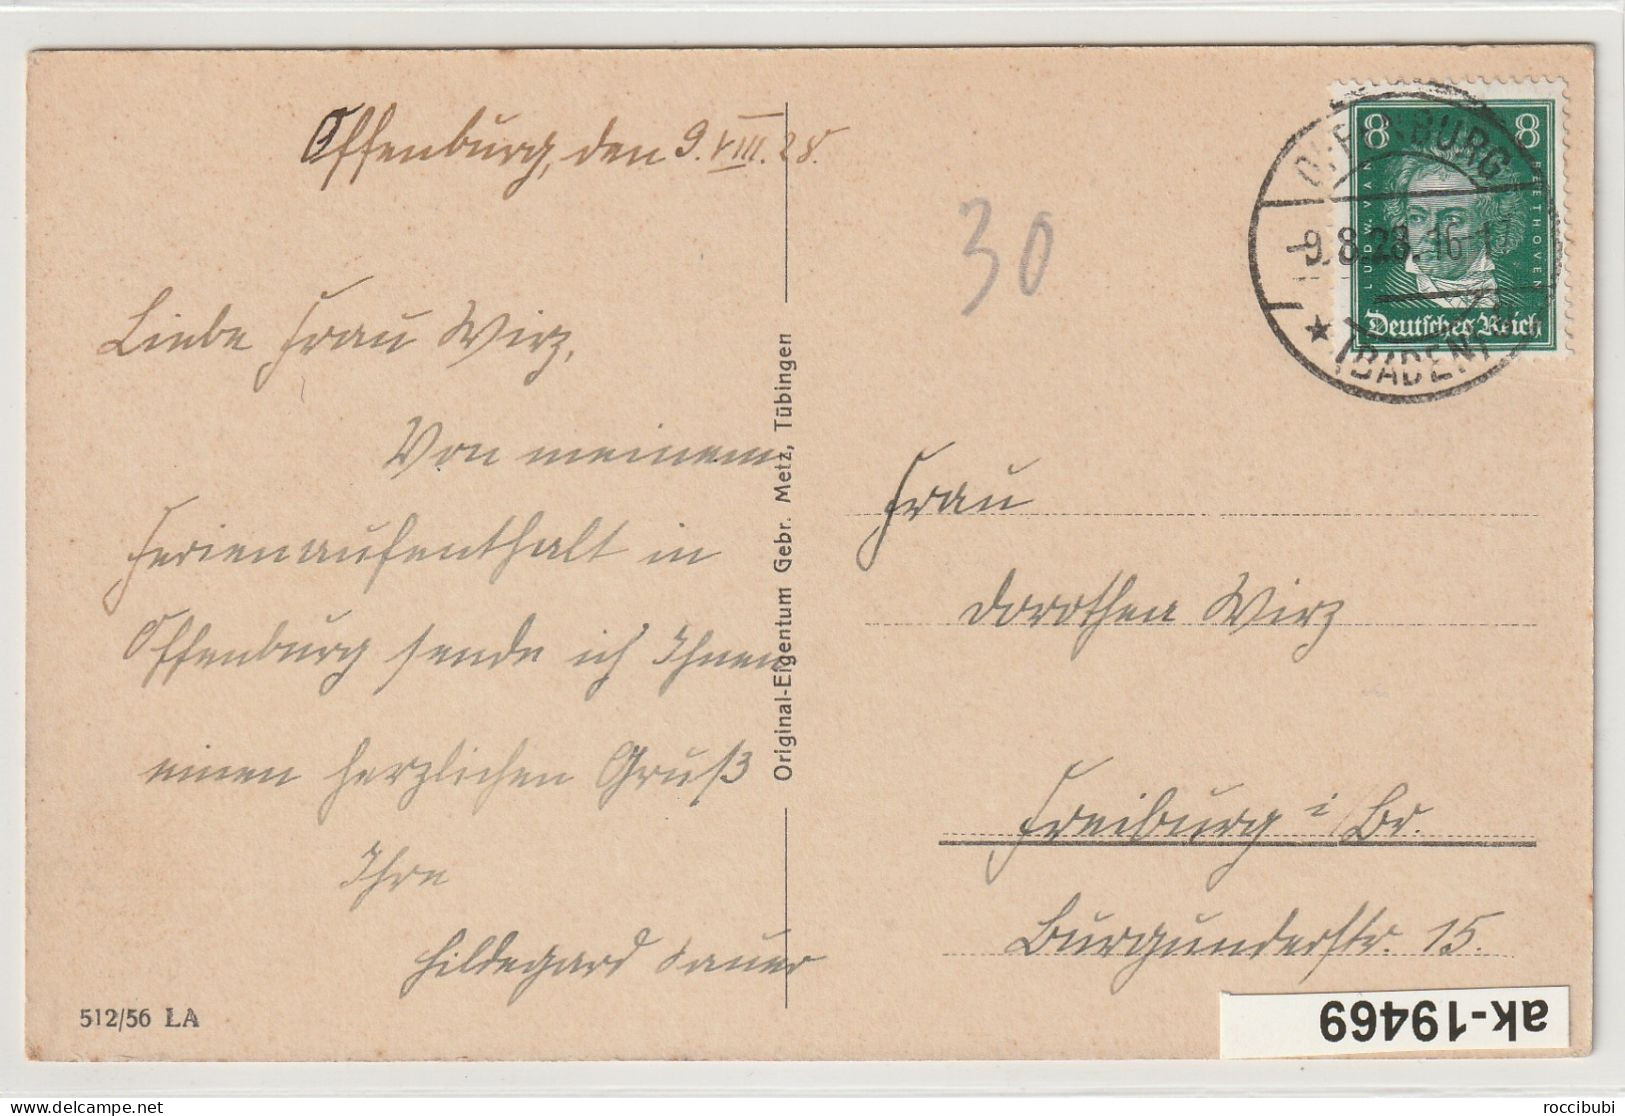 Offenburg, den 9. VIII. 28.
Liebe Frau Wirz,
Von meinem
Ferienaufenthalt in
Offenburg sende ich Ihnen
einen herzlichen Gruß
Ihre
Hildegard Sauer
512/56 LA
Original-Eigentum Gebr. Metz, Tübingen
30
OFFENBURG
9.8.28. 16-1
★ (BADEN)
8 8
LUDW. VAN
BEETHOVEN
Deutsches Reich
Frau
Dorothea Wirz
Freiburg i/Br.
Burgunderstr. 15.
ak-19469
delcampe.net
roccibubi